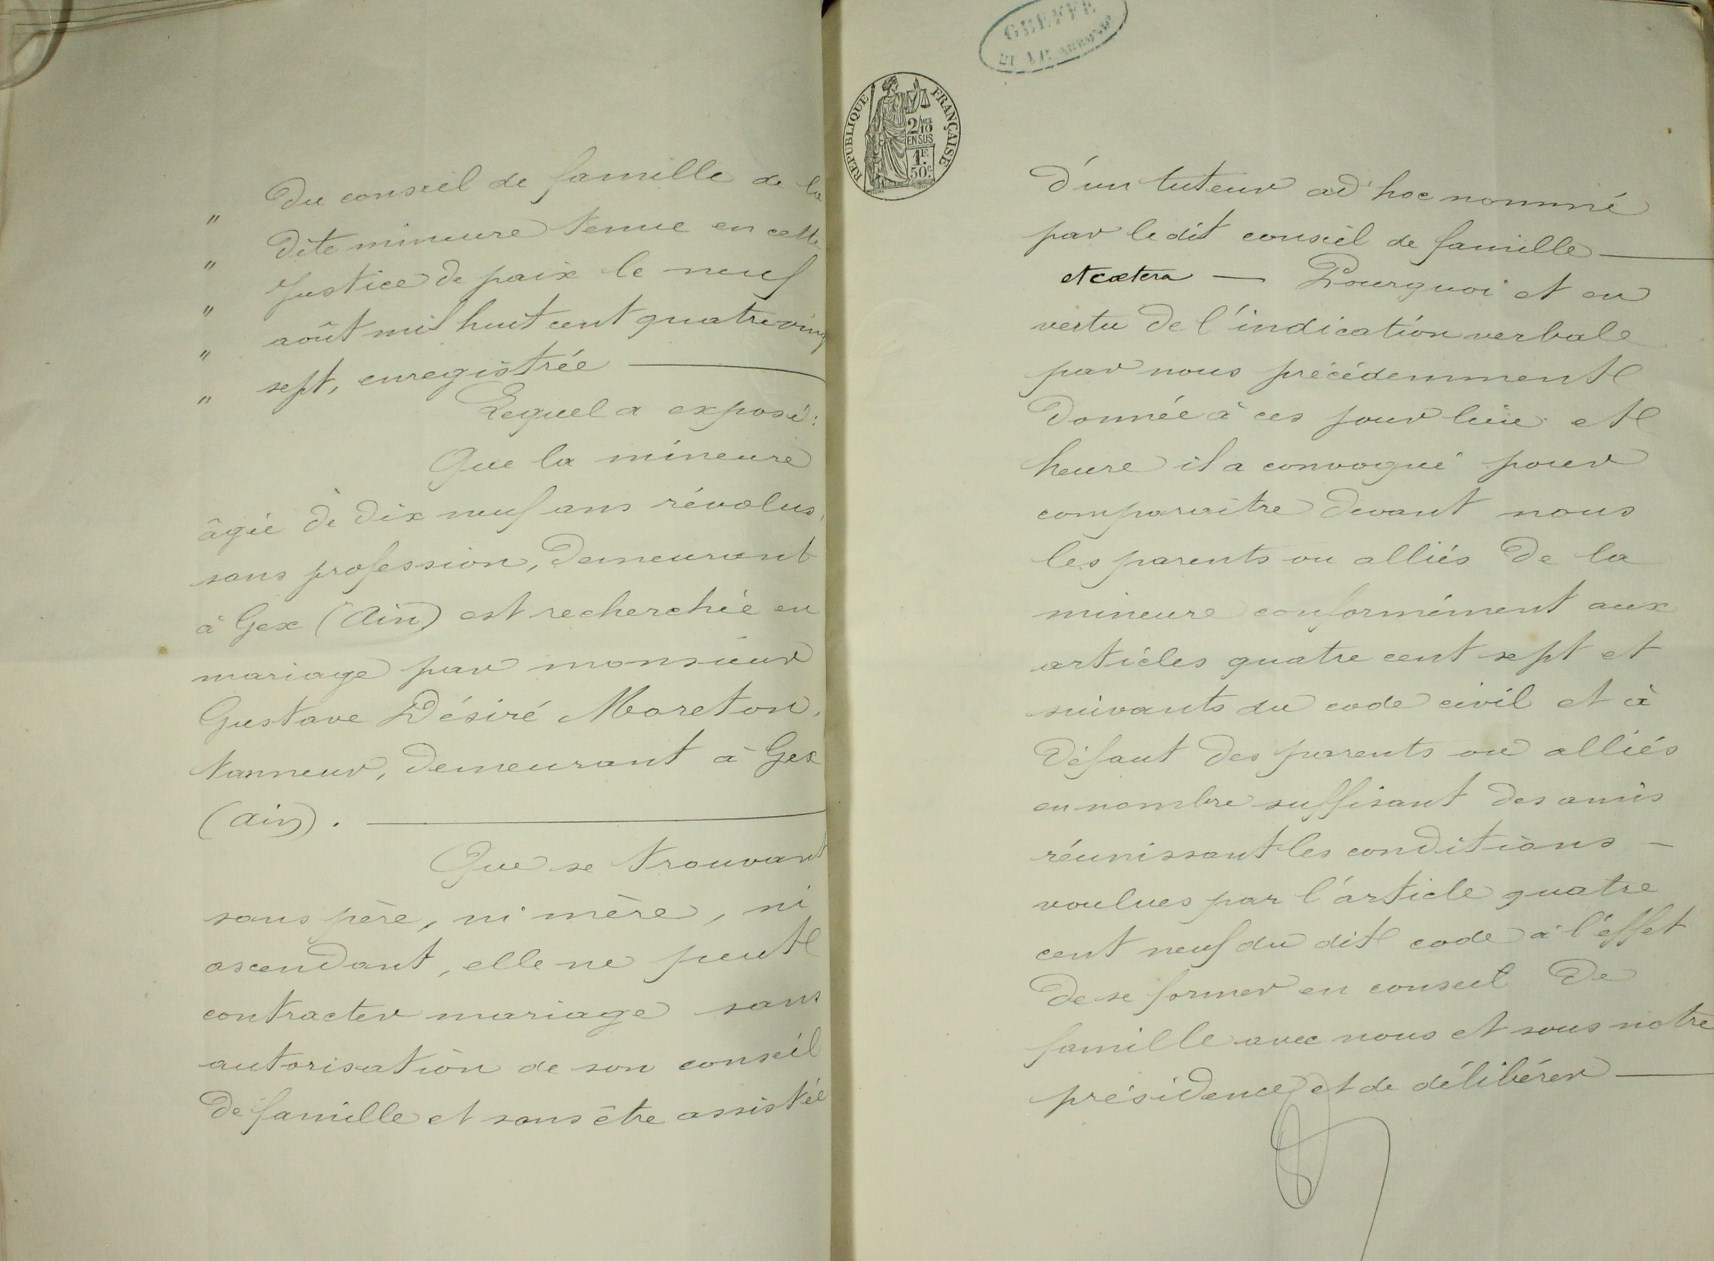 " du conseil de famille de la
" dite mineure tenue en cette
" Justice de paix le neuf
" août mil huit cent quatre vingt
" sept, enregistrée
Lequel a exposé :
Que la mineure
âgée de dix neuf ans révolus,
sans profession, demeurant
à Gex (Ain) est recherchée en
mariage par monsieur
Gustave Désiré Moreton,
tanneur, demeurant à Gex
(Ain).
Que se trouvant
sans père, ni mère, ni
ascendant, elle ne peut
contracter mariage sans
autorisation de son conseil
de famille et sans être assistée
GREFFE
RÉPUBLIQUE FRANÇAISE
2/10
EN SUS
1F.
50c
d'un tuteur ad hoc nommé
par le dit conseil de famille
et cætera — Pourquoi et en
vertu de l'indication verbale
par nous précédemment
donnée à ces jour lieu et
heure il a convoqué pour
comparaître devant nous
les parents ou alliés de la
mineure conformément aux
articles quatre cent sept et
suivants du code civil et à
défaut des parents ou alliés
en nombre suffisant des amis
réunissant les conditions —
voulues par l'article quatre
cent neuf du dit code à l'effet
de se former en conseil de
famille avec nous et sous notre
présidence et de délibérer